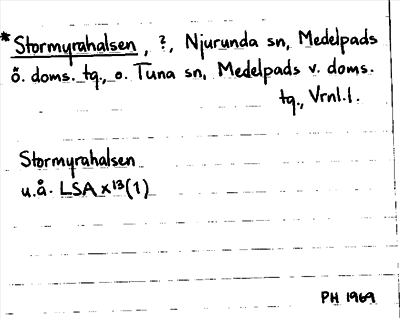 *Stormyrahalsen, ?, Njurunda sn, Medelpads
ö. doms. tg., o. Tuna sn, Medelpads v. doms.
tg., Vrnl. l.
Stormyrahalsen
u.å. LSA X¹³(1)
PH 1969